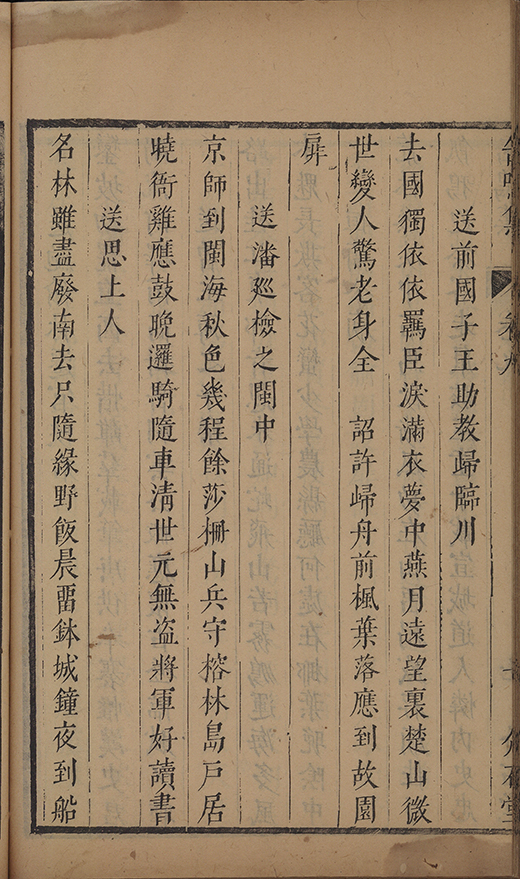 送前國子王助教歸臨川
去國獨依依羈臣淚滿衣夢中燕月遠望裏楚山微
世變人驚老身全 詔許歸舟前楓葉落應到故園
扉
送潘廵檢之閩中
京師到閩海秋色幾程餘莎柵山兵守榕林島戶居
曉衙雞應鼓晚邏騎隨車清世元無盗將軍好讀書
送思上人
名林雖盡廢南去只隨緣野飯晨畱鉢城鐘夜到船